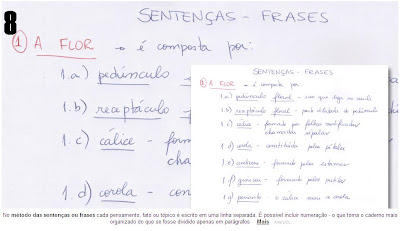 8
SENTENÇAS - FRASES
① A FLOR → é composta por:
1.a) pedúnculo
1.b) receptáculo
1.c) cálice - form
cham
1.d) corola - con
SENTENÇAS - FRASES
① A FLOR → é composta por:
1.a) pedúnculo floral - eixo que liga ao caule
1.b) receptáculo floral - parte dilatada do pedúnculo
1.c) cálice - formado por folhas modificadas
chamadas sépalas
1.d) corola - constituída pela pétalas
1.e) androceu - formado pelos estames
1.f) gineceu - formado pelos pistilos
1.g) perianto - o cálice mais a corola
No método das sentenças ou frases cada pensamento, fato ou tópico é escrito em uma linha separada. É possível incluir numeração - o que torna o caderno mais
organizado do que se fosse dividido apenas em parágrafos Mais